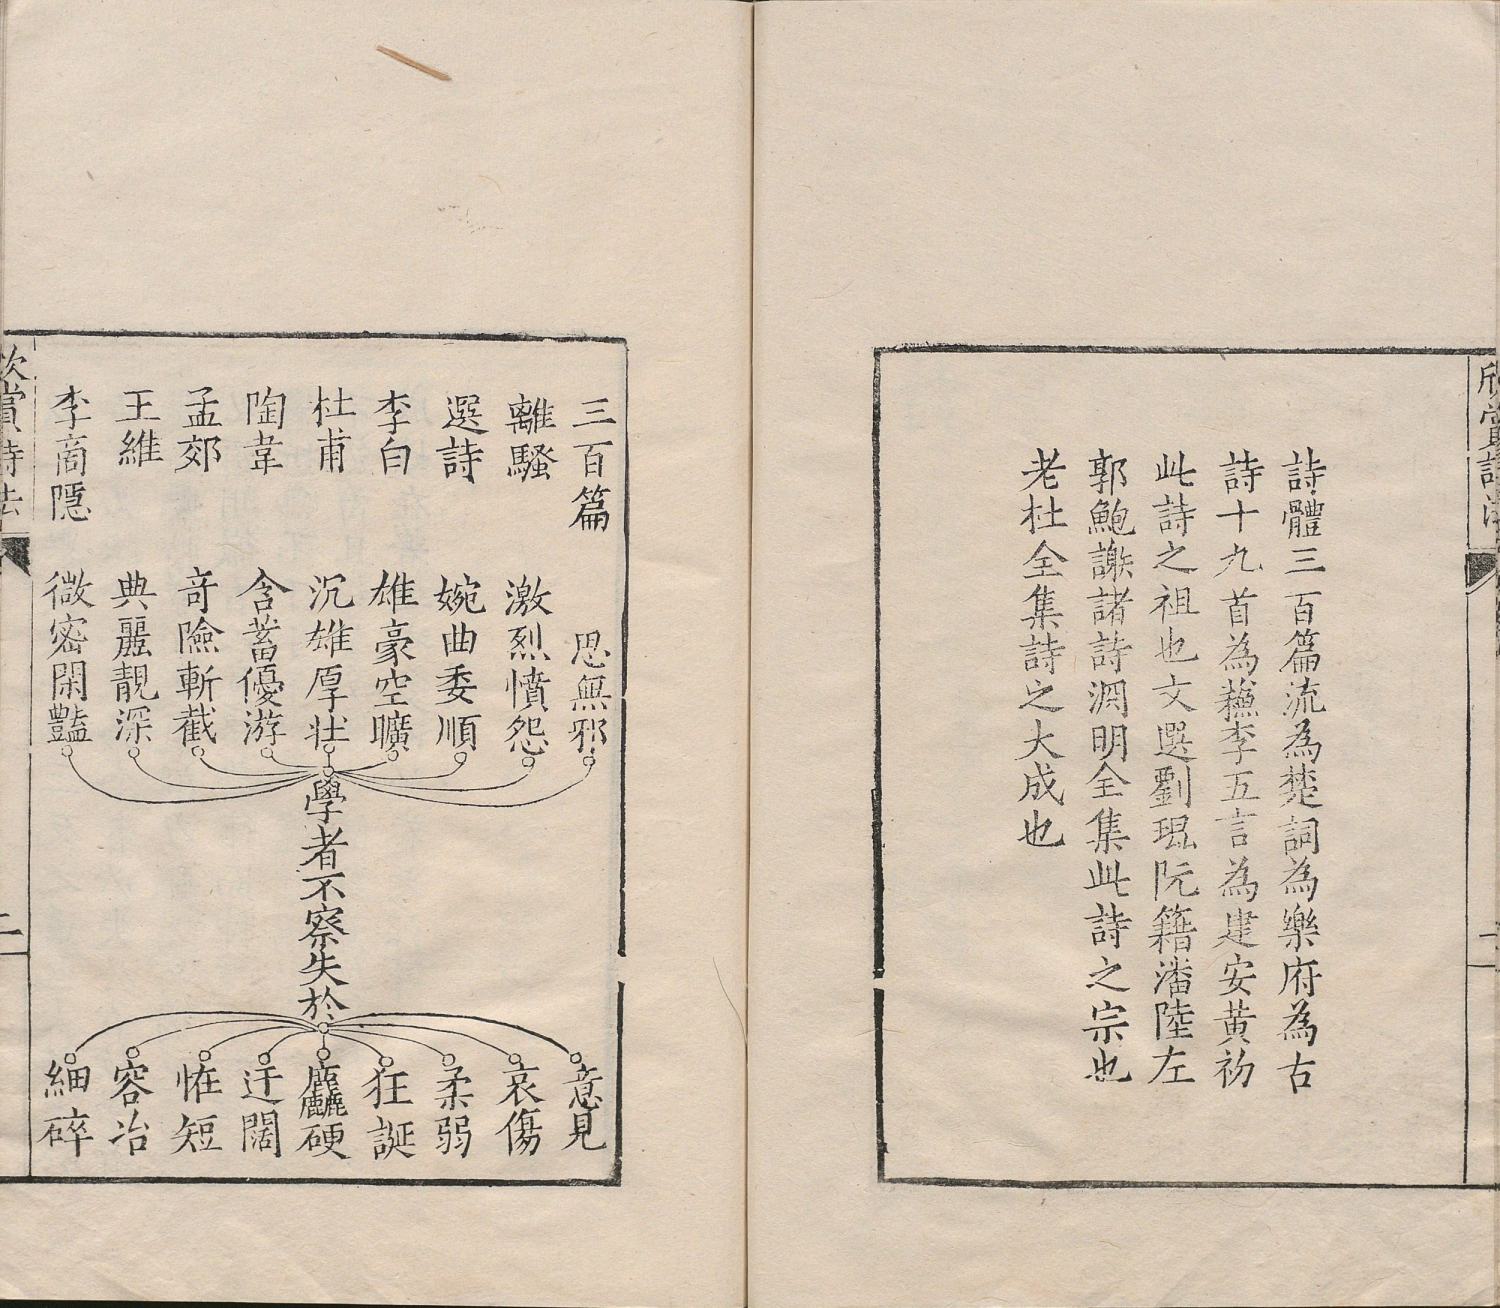 欣賞詩法
二
詩體三百篇流為楚詞為樂府為古
詩十九首為蘓李五言為建安黃初
此詩之祖也文選劉琨阮籍潘陸左
郭鮑謝諸詩淵明全集此詩之宗也
老杜全集詩之大成也
三百篇 思無邪
離騷 激烈憤怨
選詩 婉曲委順
李白 雄豪空曠
杜甫 沉雄厚壯
陶韋 含蓄優游
孟郊 奇險斬截
王維 典麗靚深
李商隱 微密閑豔
學者不察失於
意見
哀傷
柔弱
狂誕
麤硬
迂闊
恠短
容冶
細碎
欣賞詩法
二